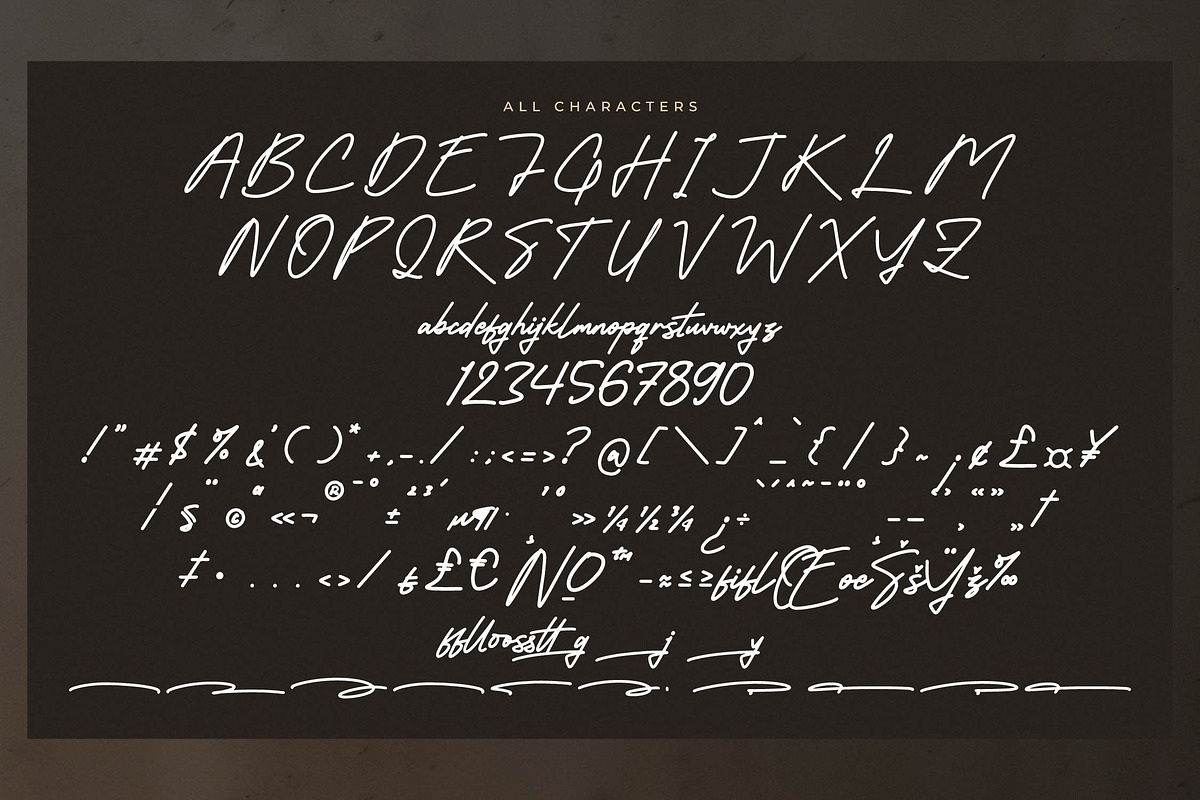 ALL CHARACTERS
ABCDEFGHIJKLM
NOPQRSTUVWXYZ
abcdefghijklmnopqrstuvwxyz
1234567890
!"#$%&'()*+,-./:;<=>?@[\]^_`{/}~¡¢£¤¥
/§¨©ª«¬®¯°±²³´µ¶·¹º»¼½¾¿÷
‡•...‹›/₤£€№™−≈≤≥fiflŒœŠšŸž‰
fflloosstt g _j _y